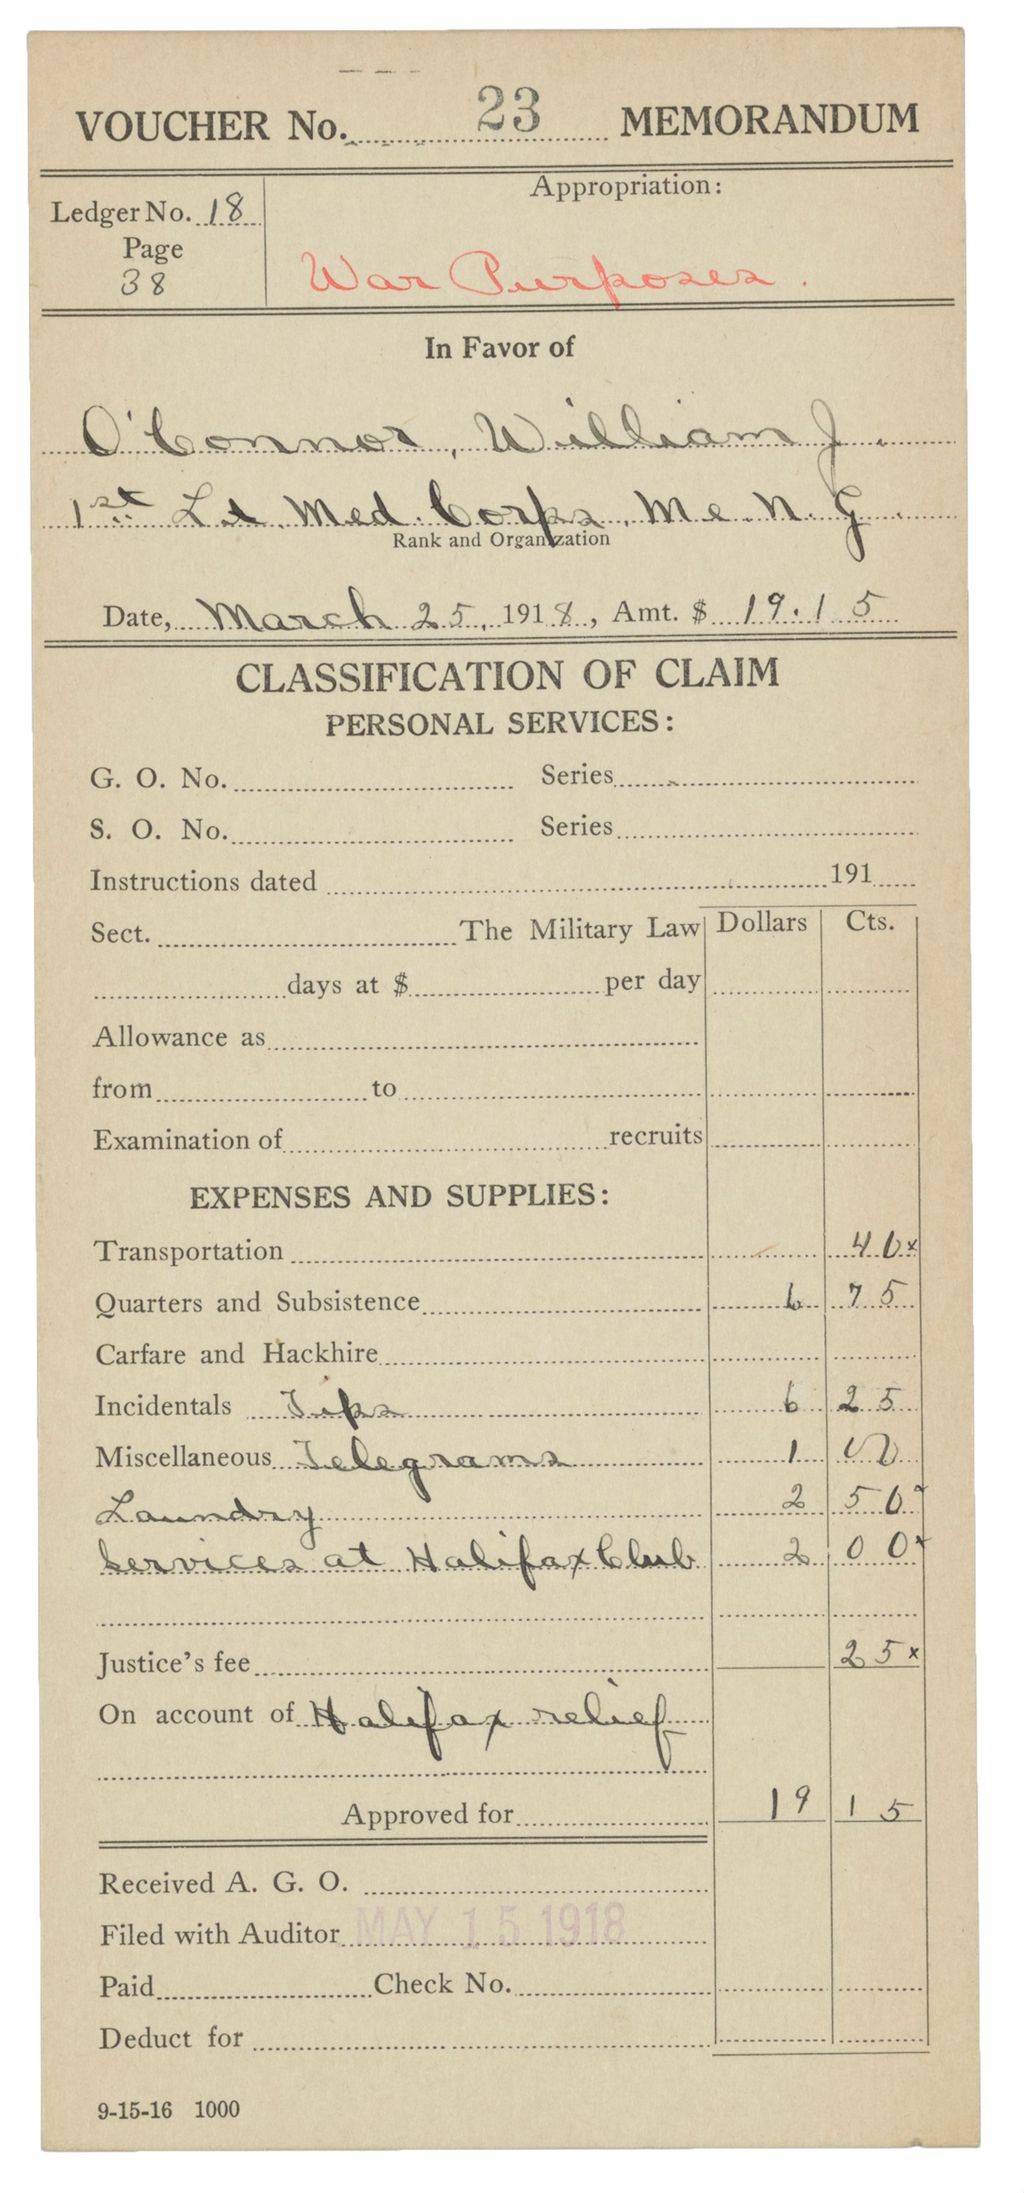 VOUCHER No. 23 MEMORANDUM
Appropriation:
Ledger No. 18
Page
38
War Purposes.
In Favor of
O'Connor, William J.
1st Lt. Med. Corps, Me. N. G.
Rank and Organization
Date, March 25, 1918, Amt. $ 19.15
CLASSIFICATION OF CLAIM
PERSONAL SERVICES:
G. O. No. Series
S. O. No. Series
Instructions dated 191
Sect. The Military Law Dollars Cts.
days at $ per day
Allowance as
from to
Examination of recruits
EXPENSES AND SUPPLIES:
Transportation 40x
Quarters and Subsistence 6 75
Carfare and Hackhire
Incidentals Tips 6 25
Miscellaneous Telegrams 1 00
Laundry 2 50x
Services at Halifax Club 2 00x
Justice's fee 25x
On account of Halifax relief
Approved for 19 15
Received A. G. O.
Filed with Auditor MAY 15 1918
Paid Check No.
Deduct for
9-15-16 1000